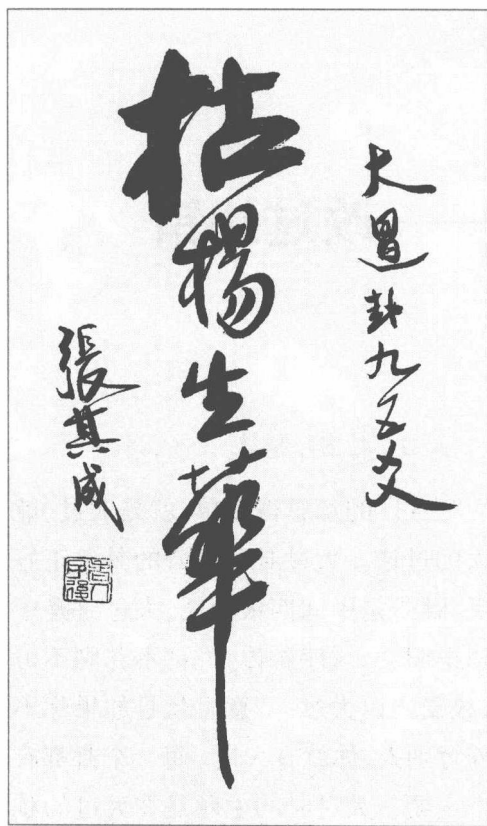 大過卦九五爻
枯楊生華
張其成